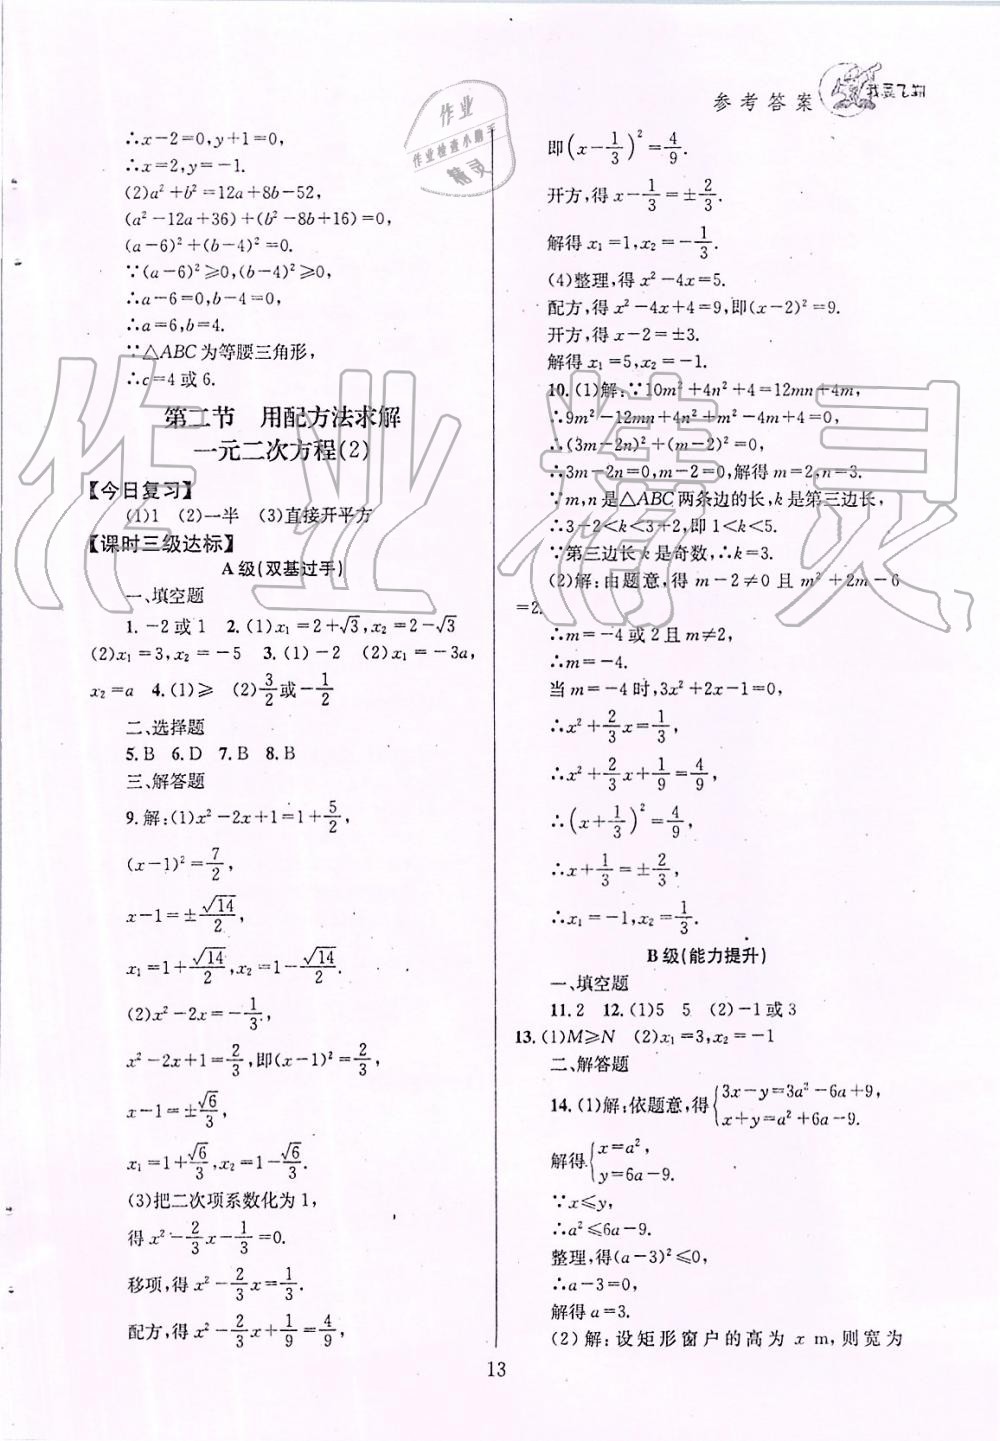 参考答案
∴x-2=0,y+1=0.
∴x=2,y=-1.
(2)a²+b²=12a+8b-52,
(a²-12a+36)+(b²-8b+16)=0,
(a-6)²+(b-4)²=0.
∵(a-6)²⩾0,(b-4)²⩾0,
∴a-6=0,b-4=0,
∴a=6,b=4.
∵△ABC为等腰三角形,
∴c=4或6.
第二节 用配方法求解
一元二次方程(2)
【今日复习】
(1)1 (2)一半 (3)直接开平方
【课时三级达标】
A级(双基过手)
一、填空题
1.-2或1 2.(1)x₁=2+√3,x₂=2-√3
(2)x₁=3,x₂=-5 3.(1)-2 (2)x₁=-3a,
x₂=a 4.(1)⩾ (2)3/2或-1/2
二、选择题
5.B 6.D 7.B 8.B
三、解答题
9.解:(1)x²-2x+1=1+5/2,
(x-1)²=7/2,
x-1=±√14/2,
x₁=1+√14/2,x₂=1-√14/2.
(2)x²-2x=-1/3,
x²-2x+1=2/3,即(x-1)²=2/3,
x-1=±√6/3,
x₁=1+√6/3,x₂=1-√6/3.
(3)把二次项系数化为1,
得x²-2/3x-1/3=0.
移项,得x²-2/3x=1/3.
配方,得x²-2/3x+1/9=4/9,
即(x-1/3)²=4/9.
开方,得x-1/3=±2/3.
解得x₁=1,x₂=-1/3.
(4)整理,得x²-4x=5.
配方,得x²-4x+4=9,即(x-2)²=9.
开方,得x-2=±3.
解得x₁=5,x₂=-1.
10.(1)解:∵10m²+4n²+4=12mn+4m,
∴9m²-12mn+4n²+m²-4m+4=0,
∴(3m-2n)²+(m-2)²=0,
∴3m-2n=0,m-2=0,解得m=2,n=3.
∵m,n是△ABC两条边的长,k是第三边长,
∴3-2<k<3+2,即1<k<5.
∵第三边长k是奇数,∴k=3.
(2)解:由题意,得m-2≠0且m²+2m-6
=2.
∴m=-4或2且m≠2,
∴m=-4.
当m=-4时,3x²+2x-1=0,
∴x²+2/3x=1/3,
∴x²+2/3x+1/9=4/9,
∴(x+1/3)²=4/9,
∴x+1/3=±2/3,
∴x₁=-1,x₂=1/3.
B级(能力提升)
一、填空题
11.2 12.(1)5 5 (2)-1或3
13.(1)M⩾N (2)x₁=3,x₂=-1
二、解答题
14.(1)解:依题意,得{3x-y=3a²-6a+9,
x+y=a²+6a-9.
解得{x=a²,
y=6a-9.
∵x⩽y,
∴a²⩽6a-9.
整理,得(a-3)²⩽0,
∴a-3=0,
解得a=3.
(2)解:设矩形窗户的高为x m,则宽为
13
作业
作业检查小助手
精灵
作业精灵